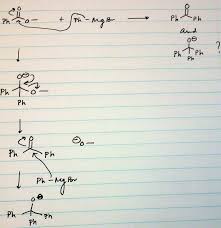 O
Ph O— + Ph–MgBr → O
Ph Ph
and
O⊖
Ph Ph
Ph
?
O⊖
Ph O—
Ph
O
Ph Ph ⊖O—
Ph–MgBr
O⊖
Ph Ph
Ph